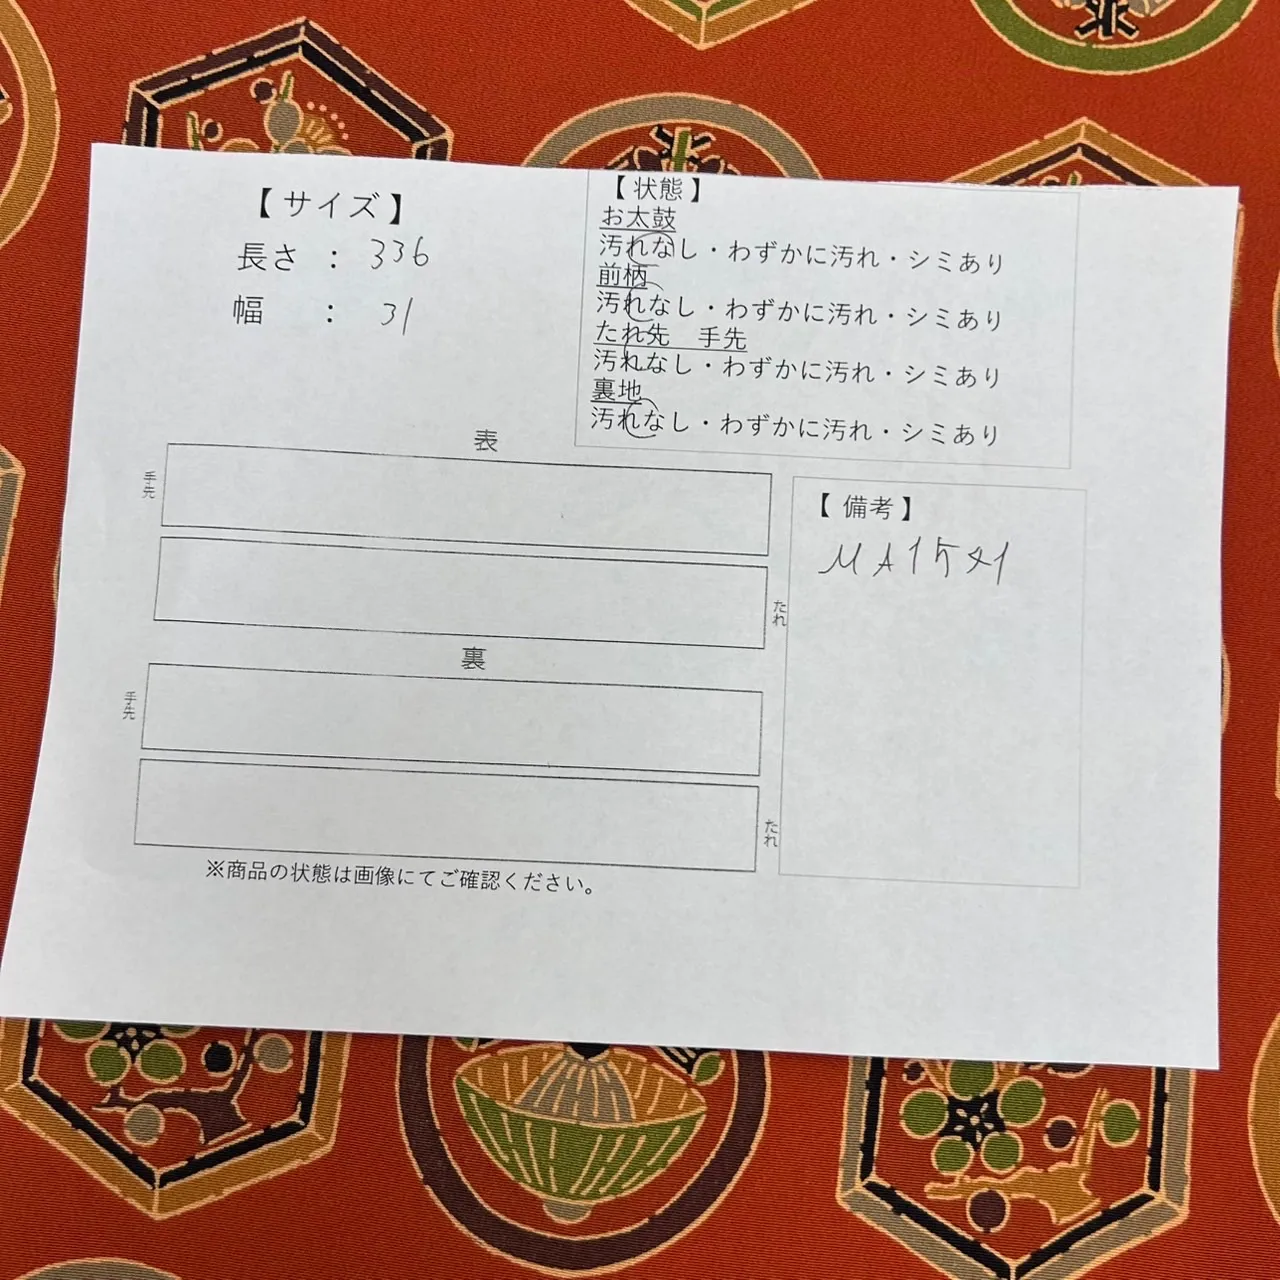 【 サイズ 】
長さ : 336
幅 : 31
【 状態 】
お太鼓
汚れなし・わずかに汚れ・シミあり
前柄
汚れなし・わずかに汚れ・シミあり
たれ先 手先
汚れなし・わずかに汚れ・シミあり
裏地
汚れなし・わずかに汚れ・シミあり
表
手先
たれ
裏
手先
たれ
※商品の状態は画像にてご確認ください。
【 備考 】